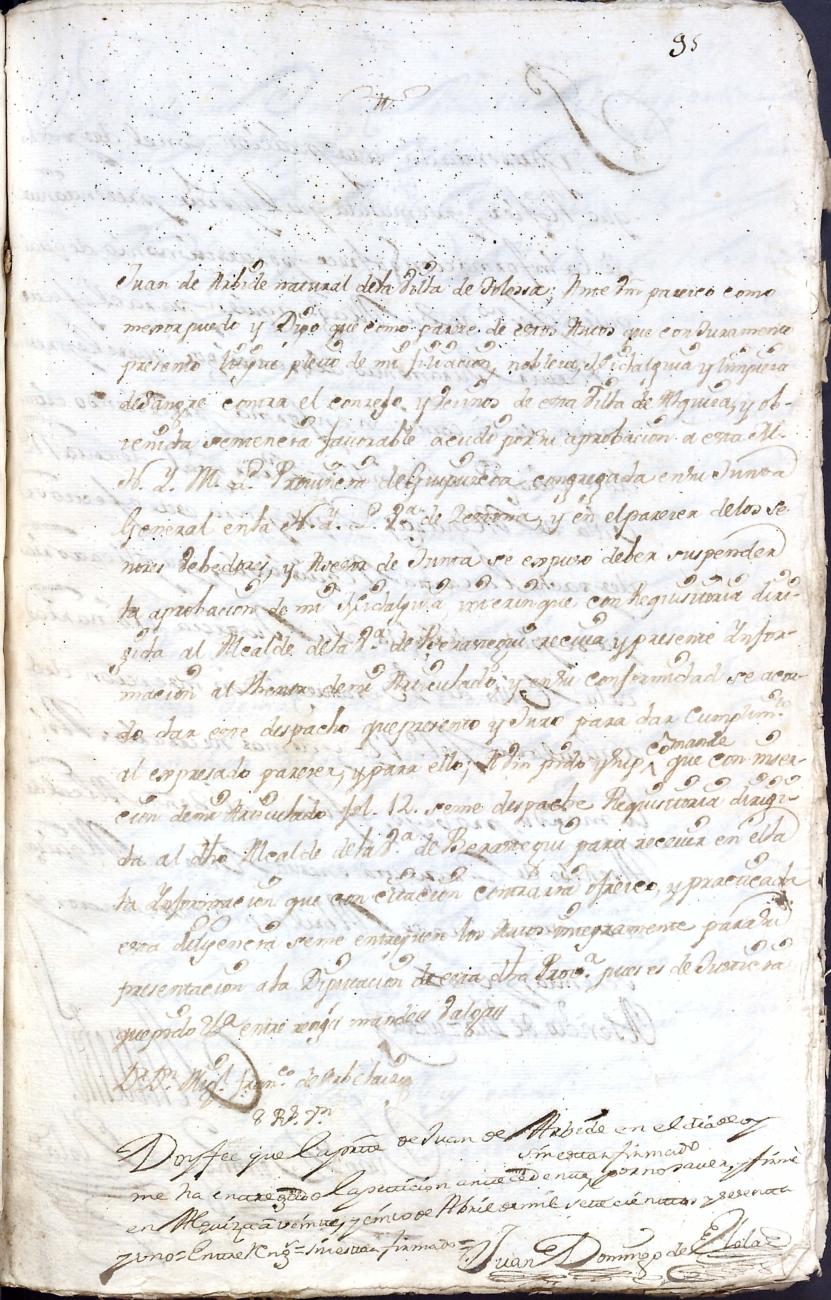 95
Juan de Arbide natural de la Villa de Tolossa, Ante Vm parezco como
mejor puedo y Digo que como parece de estos Autos que con Juramento
presento litigué pleito de mi filiacion, nobleza, Hidalguia y limpieza
de Sangre contra el conzejo, y vecinos de esta Villa de Alquiza, y ob-
tenida sentencia favorable acudi por su aprobacion a esta M.
N. y M. L. Provincia de Guipuzcoa congregada en su Junta
General en la N. y L. Va. de Zestona, y en el parecer de los se-
ñores Veedores, y Asesor de Junta se expuso deber suspender
la aprobacion de mi Hidalguia interin que con Requisitoria diri-
gida al Alcalde de la Va. de Berastegui reciva, y presente Infor-
macion al thenor de mi Articulado, y en su conformidad se acor-
do dar este despacho que presento y Juro para dar Cumplimto.
al expresado parecer, y para ello; A Vm pido y supco mande que con inser-
cion de mi Articulado fol. 12. se me despache Requisitoria dirigi-
da al dho Alcalde de la Va. de Berastegui para recevir en ella
la Informacion que con citacion contraria ofrezco, y practicada
esta diligencia se me entreguen los Autos integramente para su
presentacion a la Diputacion de esta dha Prova. pues es de Justicia
que pido Va entre rengs mande Valga
Dr. Dn. Migl. Franco. de
8 Rs. Vn
Doy fee que la parte de Juan de Arbide en el dia de oy
sin estar firmado
me ha entregado la peticion antecedente, por no saver, y firmé
en Alquiza a veinte y cinco de Abril de mil setecientos y sesenta
y uno = Entre Rengs = sin estar firmado =
Juan Domingo de Elola